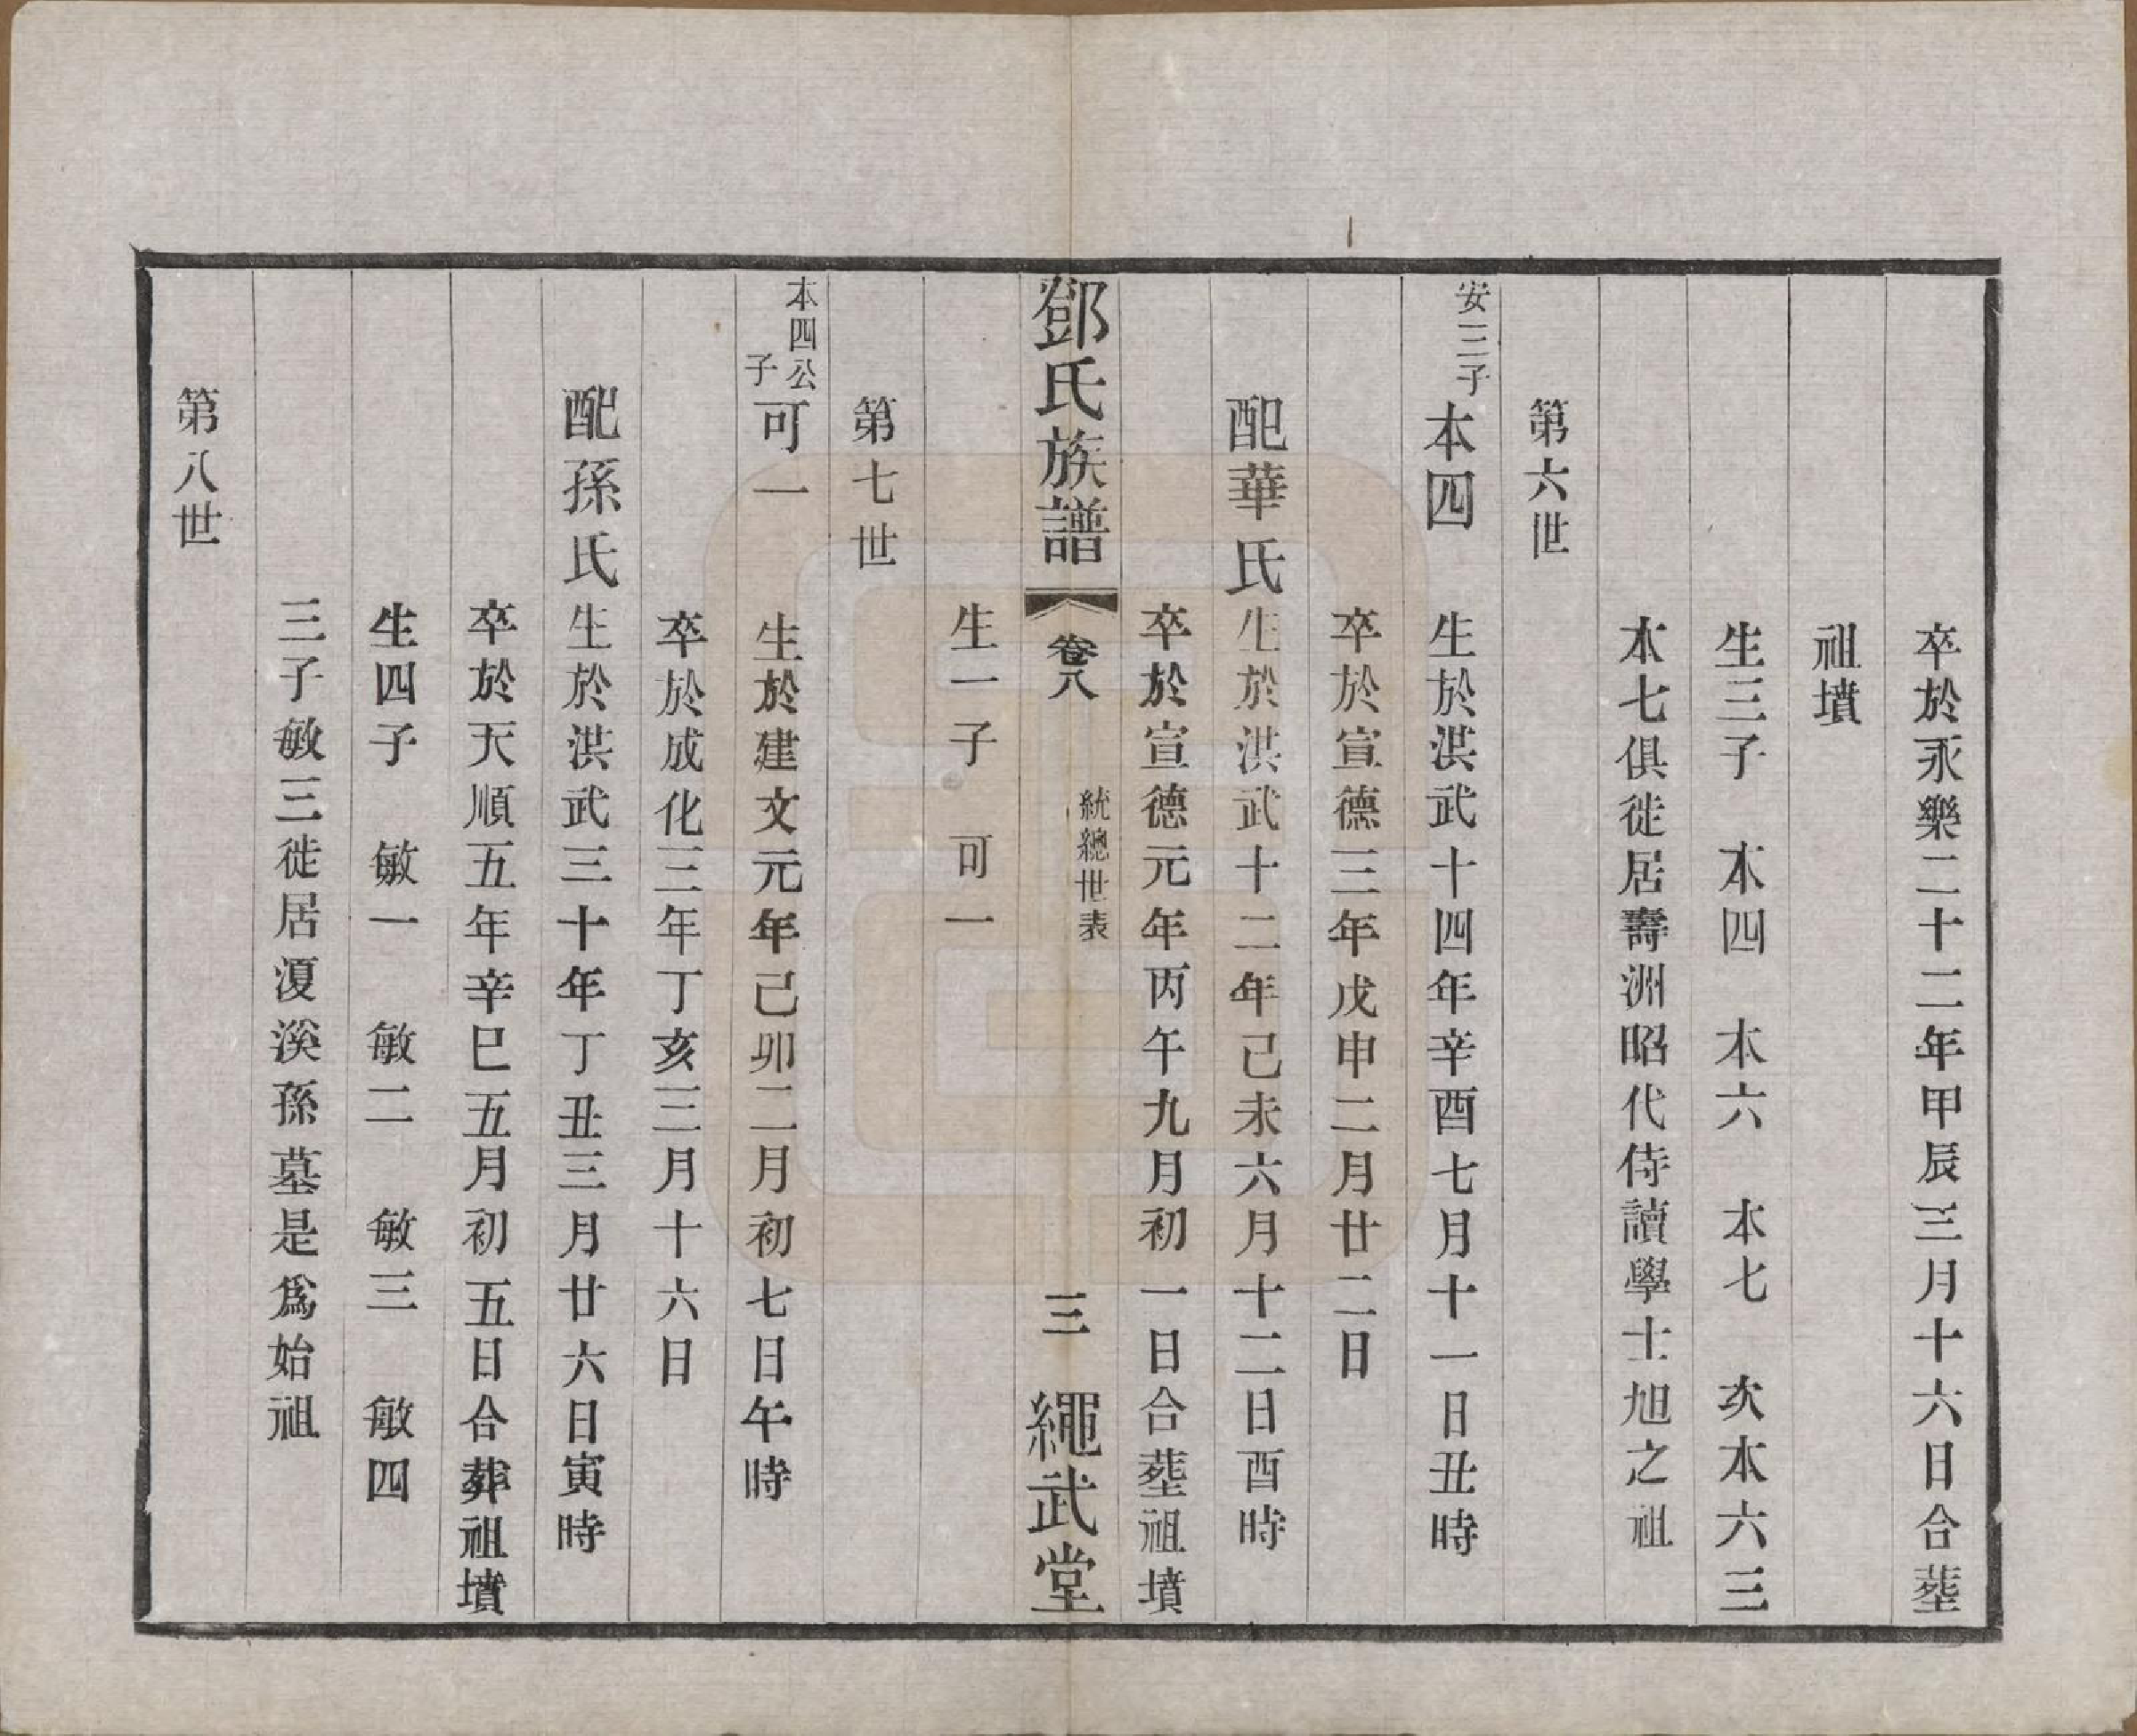 卒於永樂二十二年甲辰三月十六日合塟
祖墳
生三子　本四　本六　本七　次本六三
本七俱徙居壽洲昭代侍讀學士旭之祖
第六世
安三子本四　生於洪武十四年辛酉七月十一日丑時
卒於宣德三年戊申二月廿二日
配華氏生於洪武十二年己未六月十二日酉時
卒於宣德元年丙午九月初一日合塟祖墳
鄧氏族譜　卷八　統總世表　三　繩武堂
生一子　可一
第七世
本四公子可一　生於建文元年己卯二月初七日午時
卒於成化三年丁亥三月十六日
配孫氏生於洪武三十年丁丑三月廿六日寅時
卒於天順五年辛巳五月初五日合葬祖墳
生四子　敏一　敏二　敏三　敏四
三子敏三徙居溭溪孫墓是爲始祖
第八世